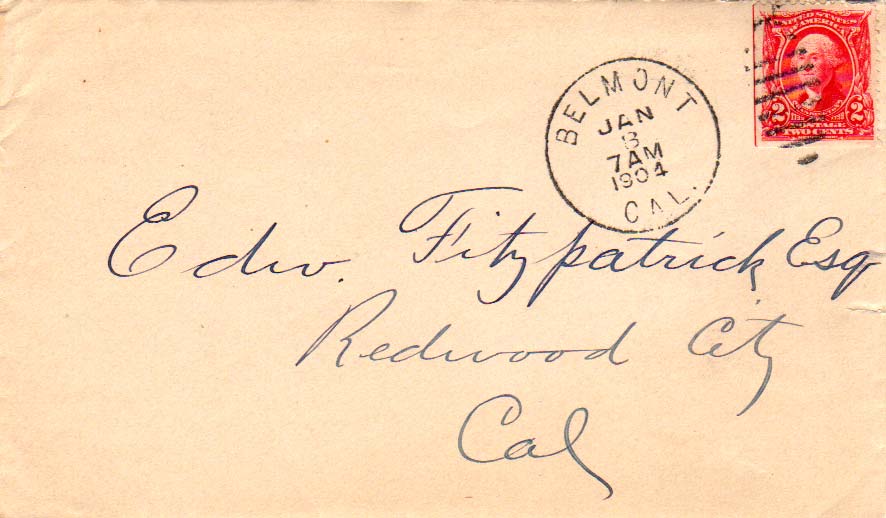 UNITED STATES
OF AMERICA
2 2
POSTAGE
TWO CENTS
BELMONT
JAN
8
7AM
1904
CAL.
Edw. Fitzpatrick Esq
Redwood City
Cal